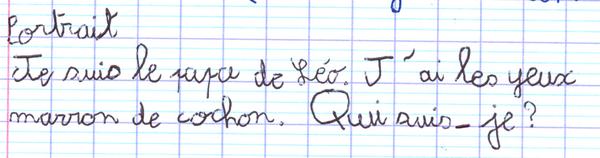 Portrait
Je suis le papa de Léo. J'ai les yeux
marron de cochon. Qui suis-je?